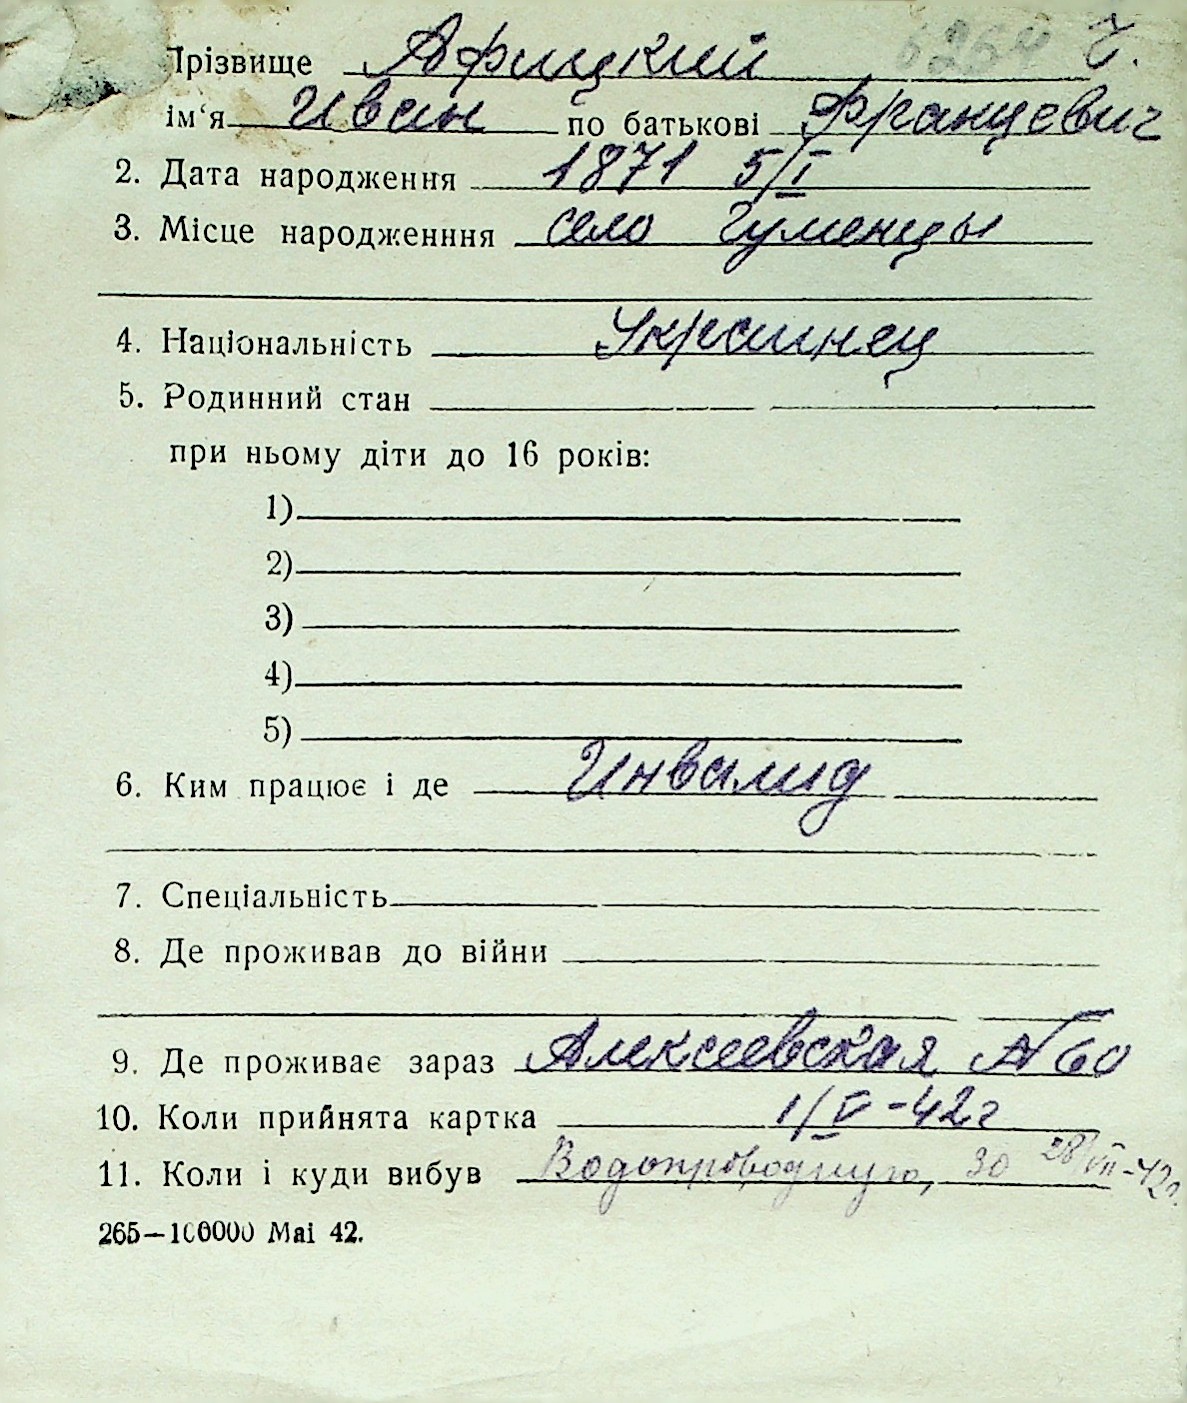 Прізвище Афицкий 6264 Ч.
ім‘я Иван по батькові Францевич
2. Дата народження 1871 5/I
3. Місце народженння село Гуменцы
4. Національність Украинец
5. Родинний стан
при ньому діти до 16 років:
1)
2)
3)
4)
5)
6. Ким працює і де Инвалид
7. Спеціальність
8. Де проживав до війни
9. Де проживає зараз Алексеевская №60
10. Коли прийнята картка 1/V-42г
11. Коли і куди вибув Водопроводную, 30 28/VII-42г.
265—100000 Mai 42.